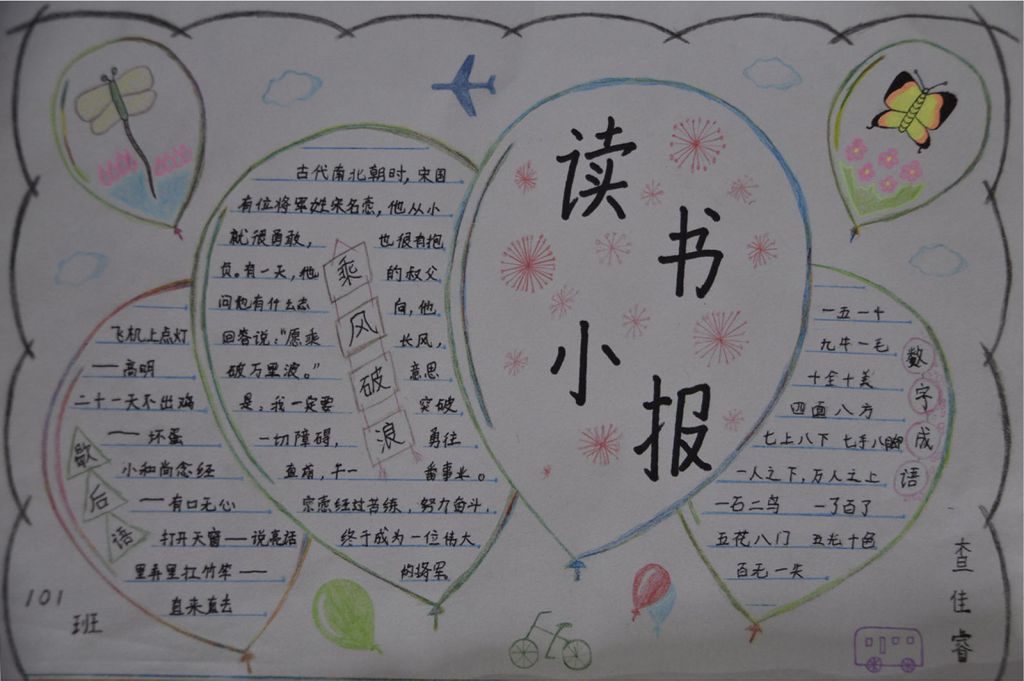 读书小报
乘风破浪
古代南北朝时,宋国
有位将军姓宋名悫,他从小
就很勇敢, 也很有抱
负。有一天,他 的叔父
问他有什么志 向,他
回答说:“愿乘 长风,
破万里浪。” 意思
是,我一定要 突破
一切障碍, 勇往
直前,干一 番事业。
宗悫经过苦练,努力奋斗,
终于成为一位伟大
的将军
歇后语
飞机上点灯
——高明
二十一天不出鸡
——坏蛋
小和尚念经
——有口无心
打开天窗——说亮话
里弄里扛竹竿——
直来直去
数字成语
一五一十
九牛一毛
十全十美
四面八方
七上八下 七手八脚
一人之下,万人之上
一石二鸟 一了百了
五花八门 五光十色
百无一失
101
班
查佳睿